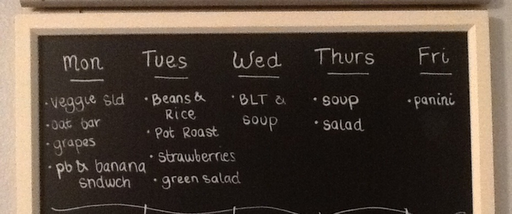 Mon Tues Wed Thurs Fri
· veggie sld
· oat bar
· grapes
· pb & banana
sndwch
· Beans &
Rice
· Pot Roast
· strawberries
· green salad
· BLT &
soup
· soup
· salad
· panini